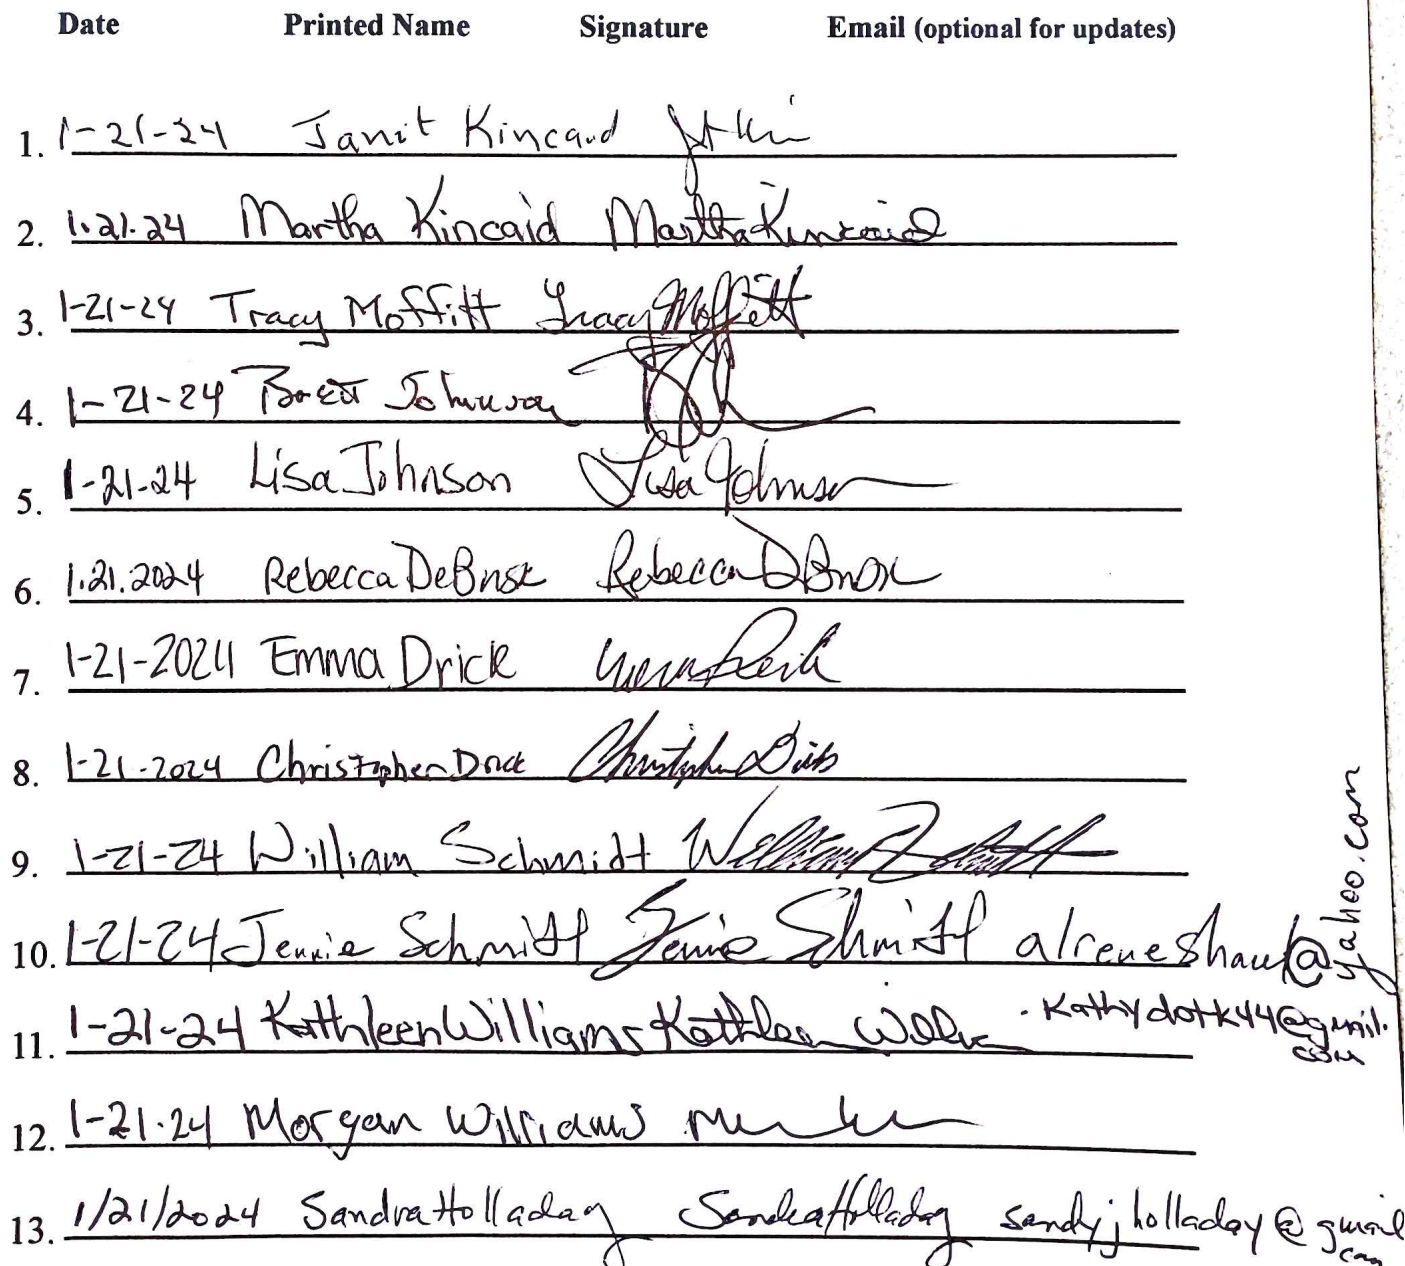 Date Printed Name Signature Email (optional for updates)
1. 1-21-24 Janit Kincaid
2. 1.21.24 Martha Kincaid Martha Kincaid
3. 1-21-24 Tracy Moffitt Tracy Moffitt
4. 1-21-24 Brett Johnson
5. 1-21-24 Lisa Johnson Lisa Johnson
6. 1.21.2024 Rebecca Rebecca
7. 1-21-2024 Emma Drick
8. 1-21-2024 Christopher Drick Christopher
9. 1-21-24 William Schmidt William
10. 1-21-24 Jennie Schmitt Jennie Schmitt alreneshaw@yahoo.com
11. 1-21-24 Kathleen Williams Kathleen Kathydotk44@gmail.com
12. 1-21-24 Morgan Williams
13. 1/21/2024 Sandra Holladay Sandra Holladay sandyjholladay@gmail
com